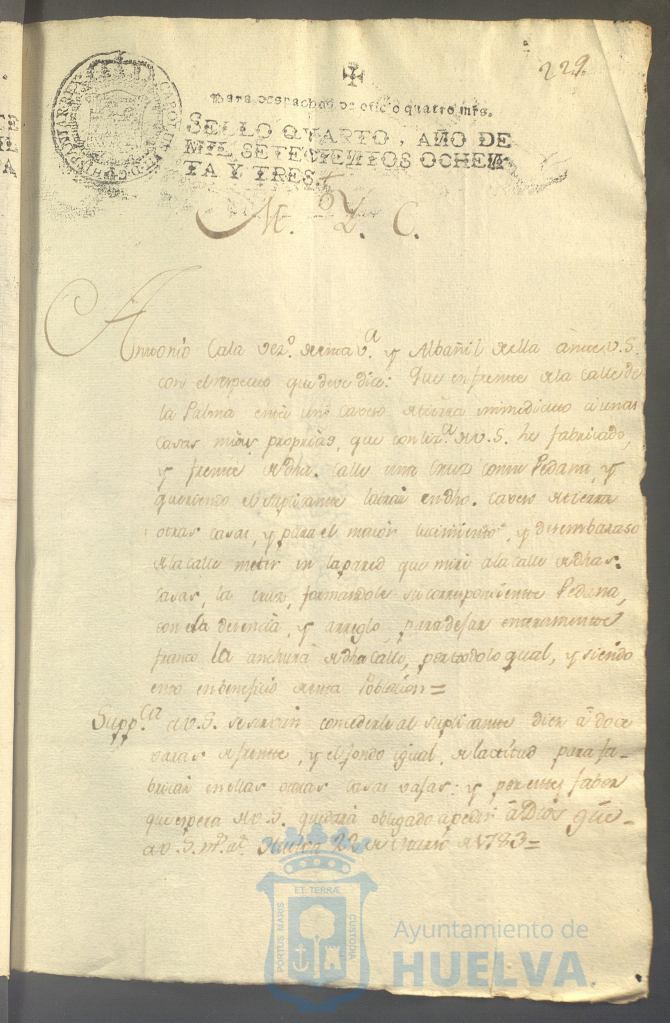 229.
Para despachos de oficio quatro mrs.
SELLO QVARTO, AÑO DE
MIL SETECIENTOS OCHEN
TA Y TRES.
M. Y. L. C.
Antonio Cala vezº. de esta vª. y Albañil de ella ante V.S.
con el respecto que deve dice: Que en frente de la Calle de
la Palma está un Cavezo de tierra inmediato a unas
casas mias proprias, que con liza. de V.S. he fabricado,
y frente de dha. calle una Cruz con su Pedana, y
queriendo el suplicante labrar en dho. Cavezo de tierra
otras casas, y para el maior lucimiento, y desembaraso
de la calle meter en la pared que mira a la calle de dhas.
casas, la cruz, formandole su correspondiente Pedana,
con la decencia, y arreglo, para dejar enteramente
franco la anchura de dha calle, por todo lo qual, y siendo
esto en beneficio de esta Poblacion=
Suppca. a V.S. se sirvan concederle al suplicante diez a doce
varas de frente, y el fondo igual de latitud para fa-
bricar en ellas otras casas vajas: y por este fabor
que espera de V.S. quedará obligado a pedir à Dios gûe-
a V.S. ms. as. Huelva 22 de Enero de 1783=
ET TERRÆ
PORTUS MARIS
CUSTODIA
Ayuntamiento de
HUELVA